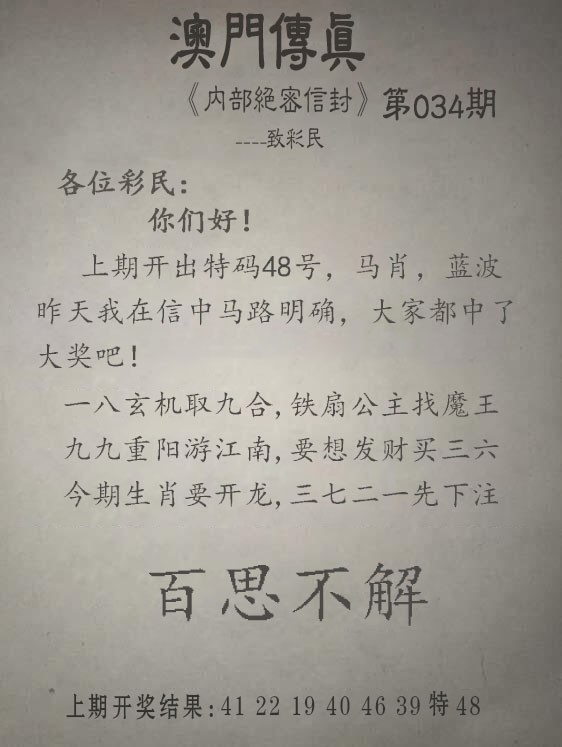 澳門傳眞
《内部絕密信封》第034期
----致彩民
各位彩民:
你们好!
上期开出特码48号，马肖，蓝波
昨天我在信中马路明确，大家都中了
大奖吧!
一八玄机取九合,铁扇公主找魔王
九九重阳游江南,要想发财买三六
今期生肖要开龙,三七二一先下注
百思不解
上期开奖结果:41 22 19 40 46 39 特 48